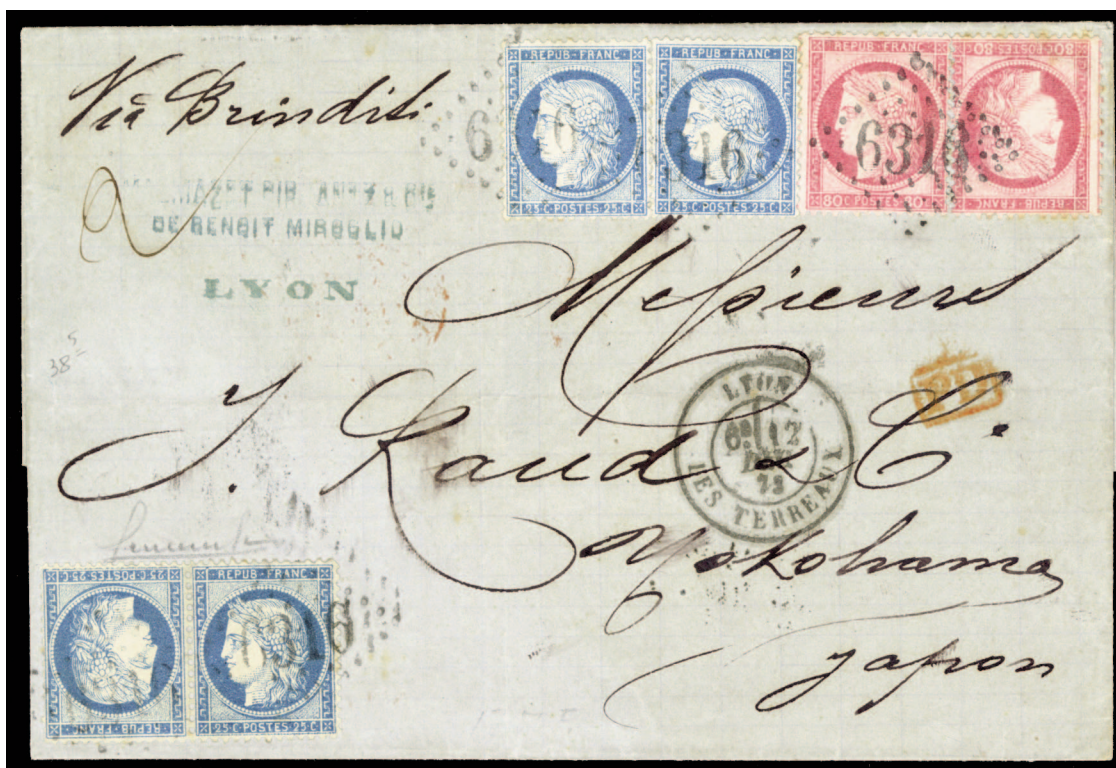 Via Brindisi
2
DE BENOIT MIROGLIO
LYON
38 5
REPUB·FRANC·
25·C·POSTES·25·C·
REPUB·FRANC·
25·C·POSTES·25·C·
REPUB·FRANC·
80·C·POSTES·80·C
REPUB·FRANC·
80·C·POSTES·80·C
6316
6316
6316
Messieurs
J. Raud & Cⁱᵉ
Yokohama
Japon
LYON
6E 12
73
LES TERREAUX
PD
REPUB·FRANC·
25·C·POSTES·25·C·
REPUB·FRANC·
25·C·POSTES·25·C·
6316